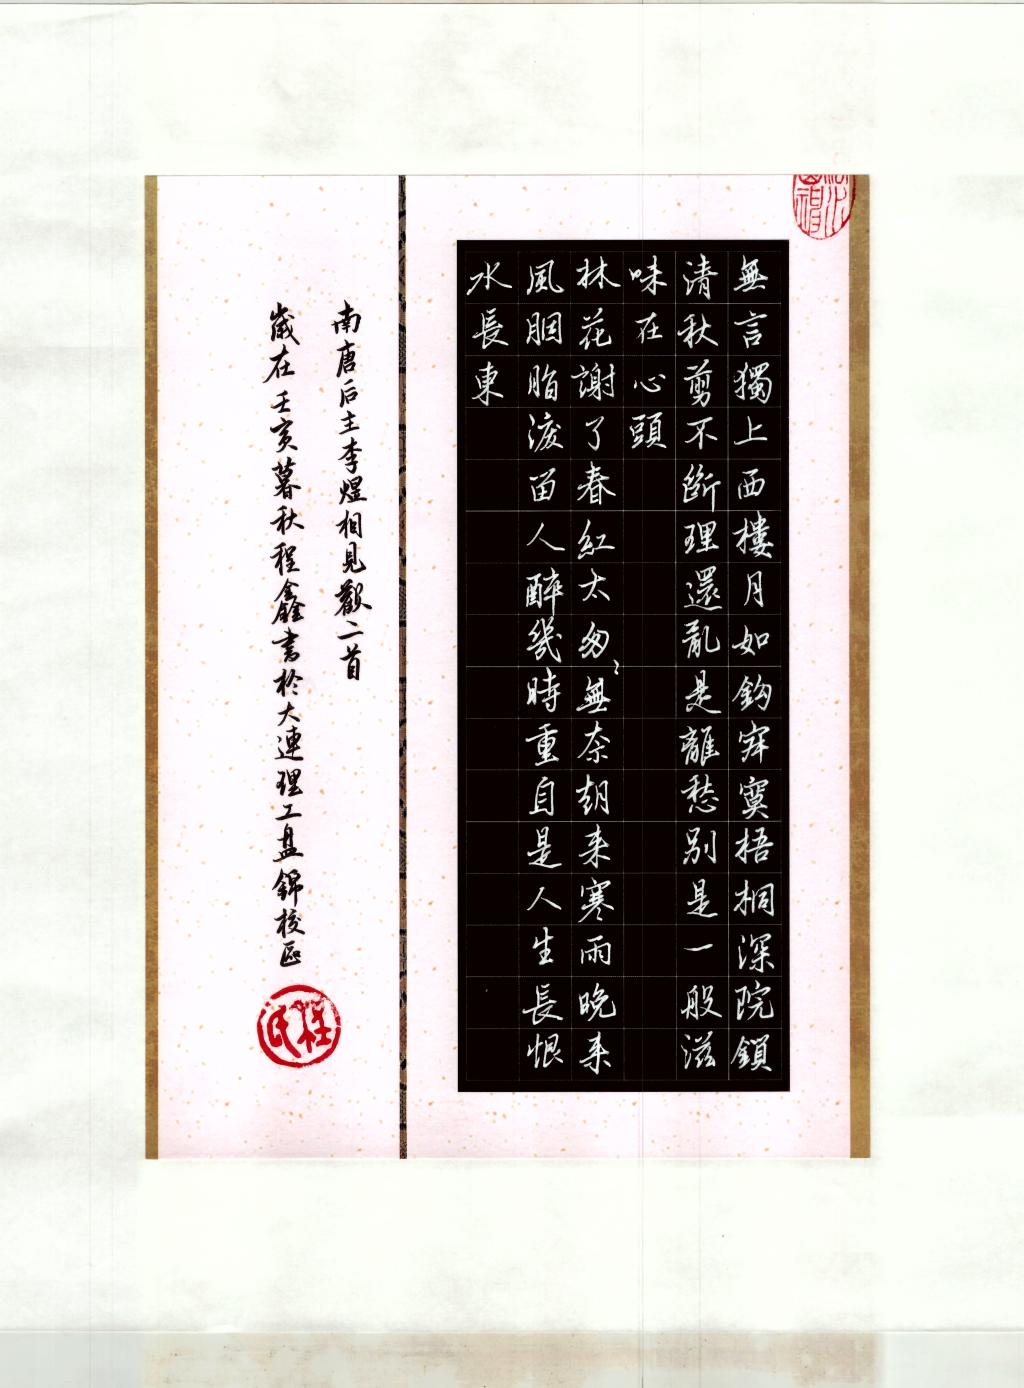 無言獨上西樓月如鈎寂寞梧桐深院鎖
清秋剪不斷理還亂是離愁別是一般滋
味在心頭
林花謝了春紅太匆〻無奈朝来寒雨晚来
風胭脂淚留人醉幾時重自是人生長恨
水長東
南唐后主李煜相見歡二首
歲在壬寅暮秋程鑫書於大連理工盘錦校區